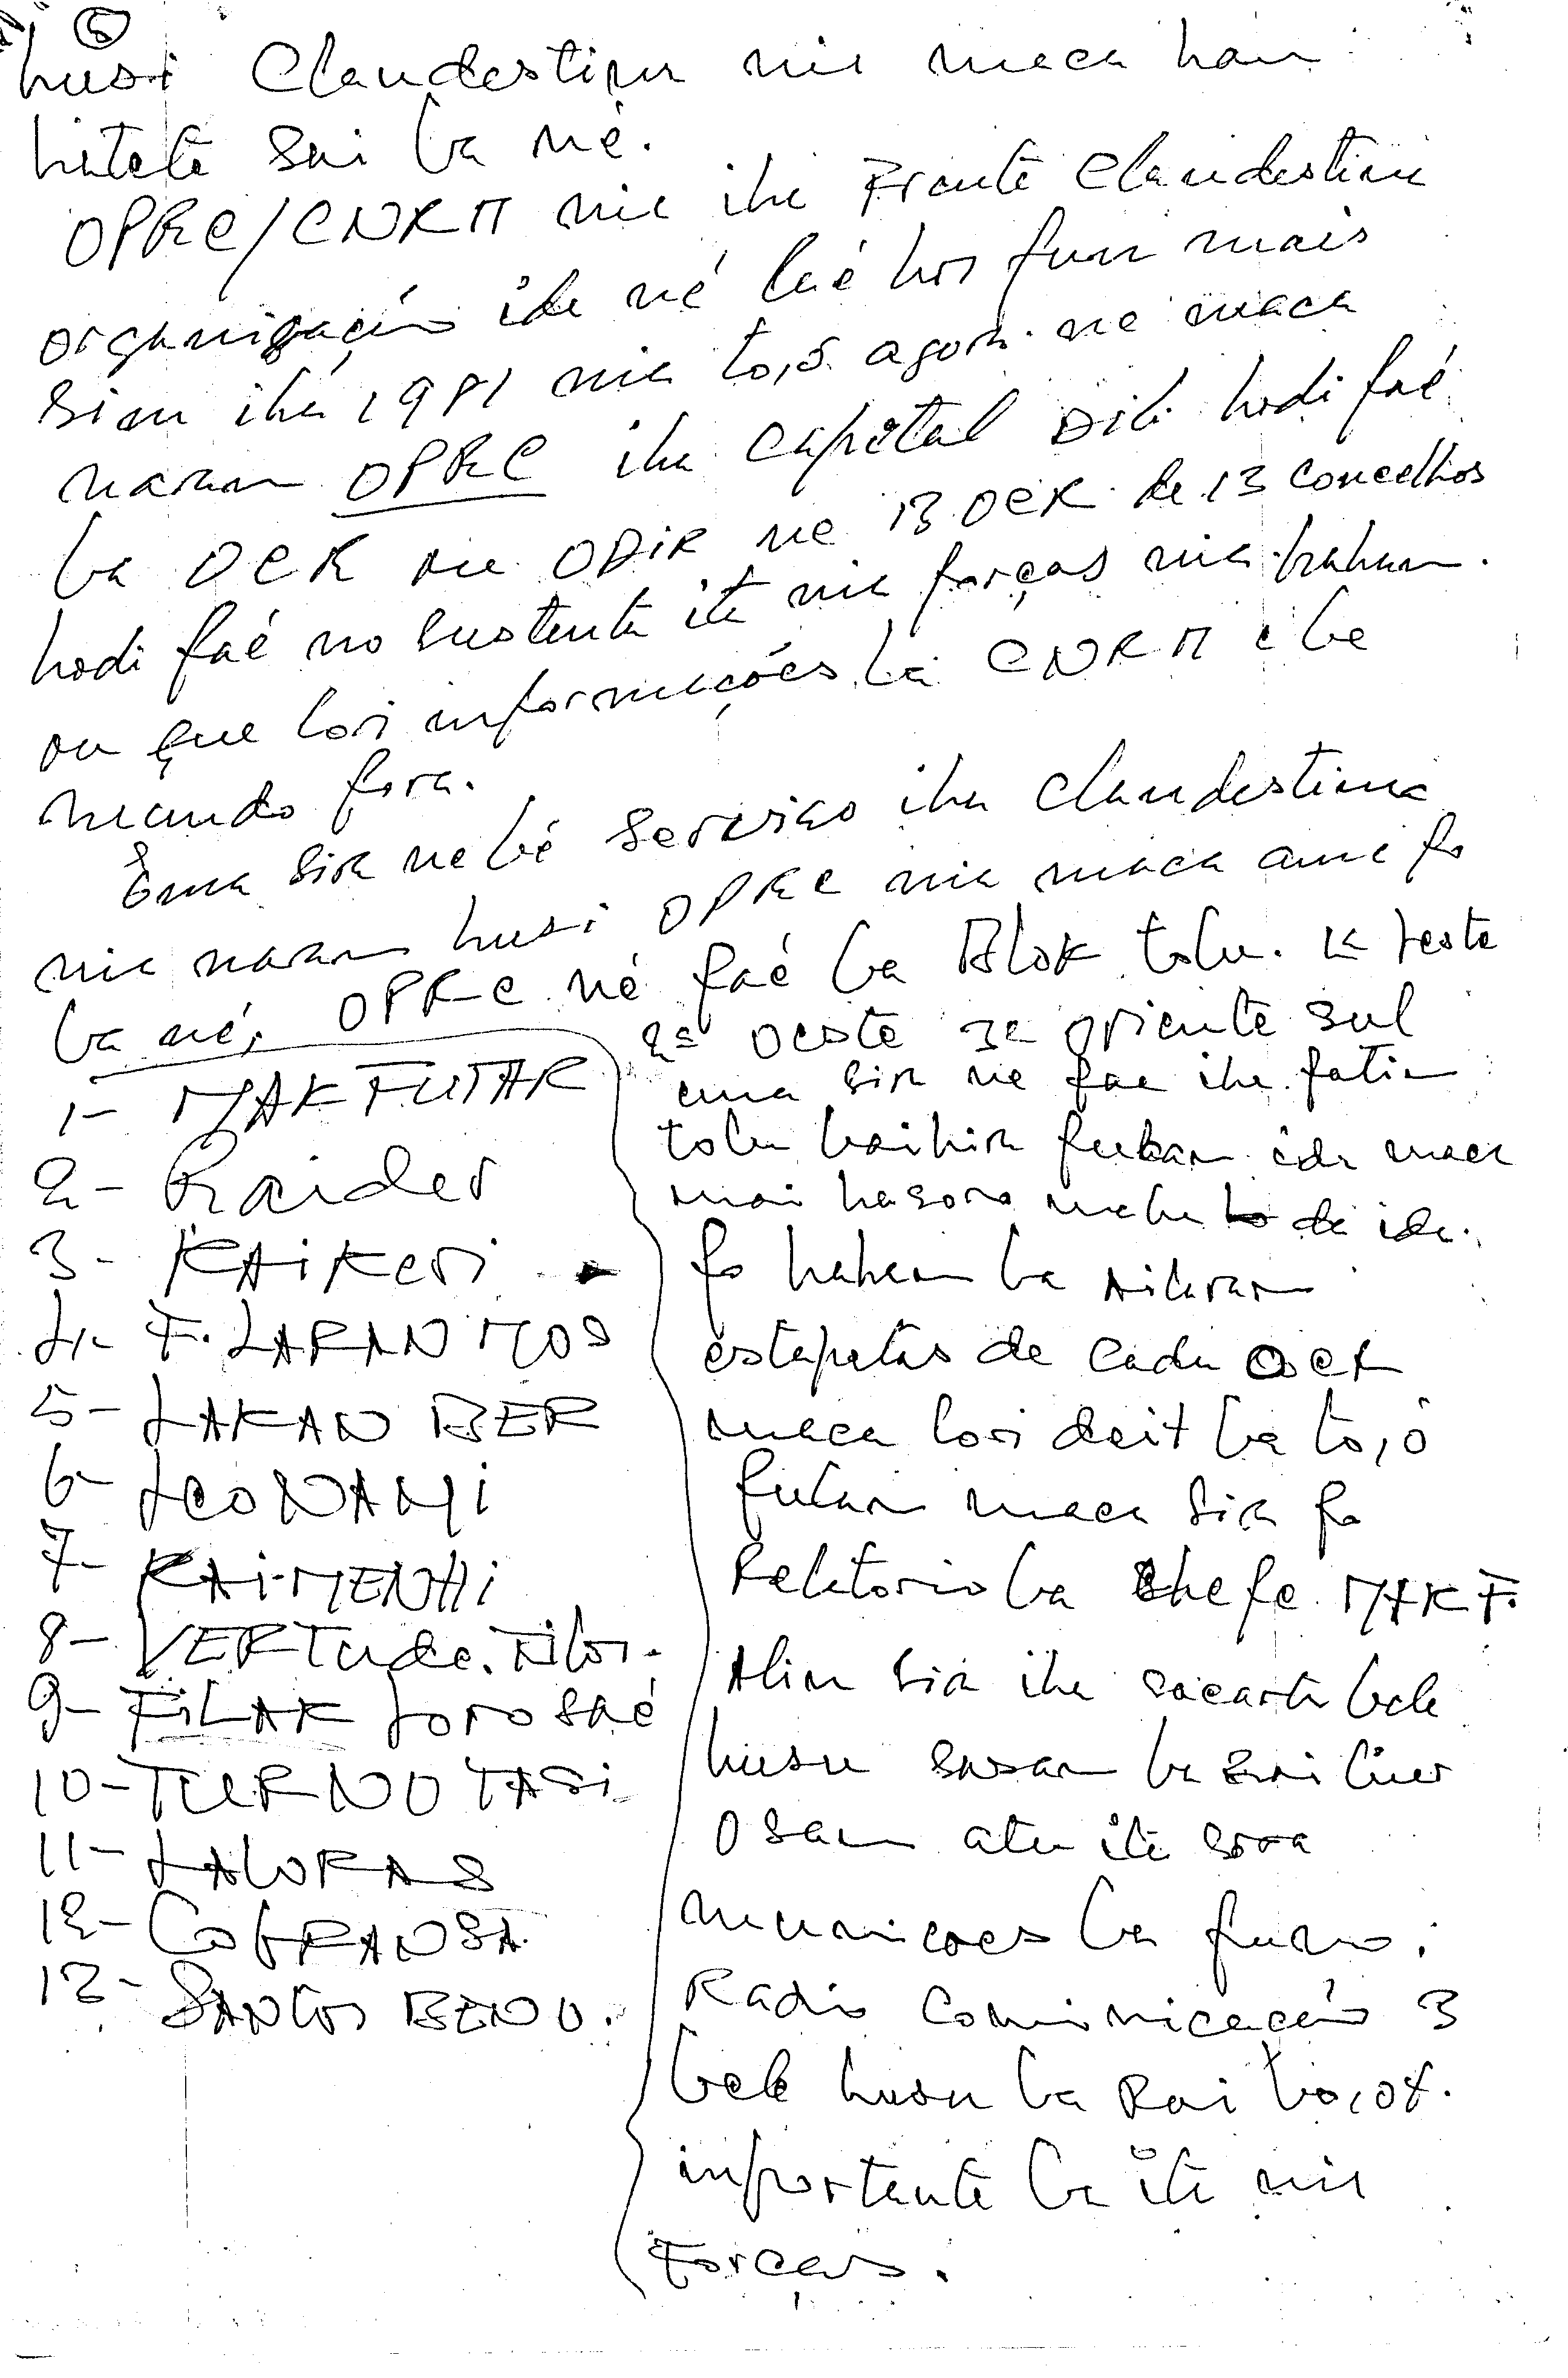 5
husi Clandestina nia maca hau
hateté sai ba né.
OPRC/CNRM nia iha Frente Clandestina
organização ida né laé hos fun mais
sim iha 1981 nia to,ó agora né maca
naran OPRC iha Capital Dili hodi faé
ba OCR ou ODIR ne 13 OCR de 13 concelhos
hodi faé no sustenta ita nia forças nia hahan.
ou que lori informações ba CNRM e be
mundo fora.
Ema sira nebé serviso iha Clandestina
nia naran husi OPRC nia maca ami fo
ba né, OPRC né faé ba Blok tolu. 1a Leste
2a Oeste 3a Oriente Sul
1- MAKFUTAR
2- Raider
3- KAIKERI
4- F. LARAN MOS
5- LAKAN BER
6- LEONAMI
7- KAI-MENHI
8- VERTUde. Filor.
9- FILAK Loro Saé
10- TURNO TASI
11- LALORAS
12- CobRANSA
13- SANtos BENO.
ema sira ne fae iha fatin
tolu baihira fulan ida maca
mai hasoru malu de ida.
fo hahan ba Ailaran
estapetas de cada OCR
maca lori deit ba to,ó
fulan maca sira fo
Relatorio ba Chefe MAKF.
Alin sira iha bele
husu sasan ba
Osan atu ita sosa
municoes ba funo.
Radio Comonicacão 3
bele husu ba Rai bo,ot.
inportante ba ita nia
Forças.